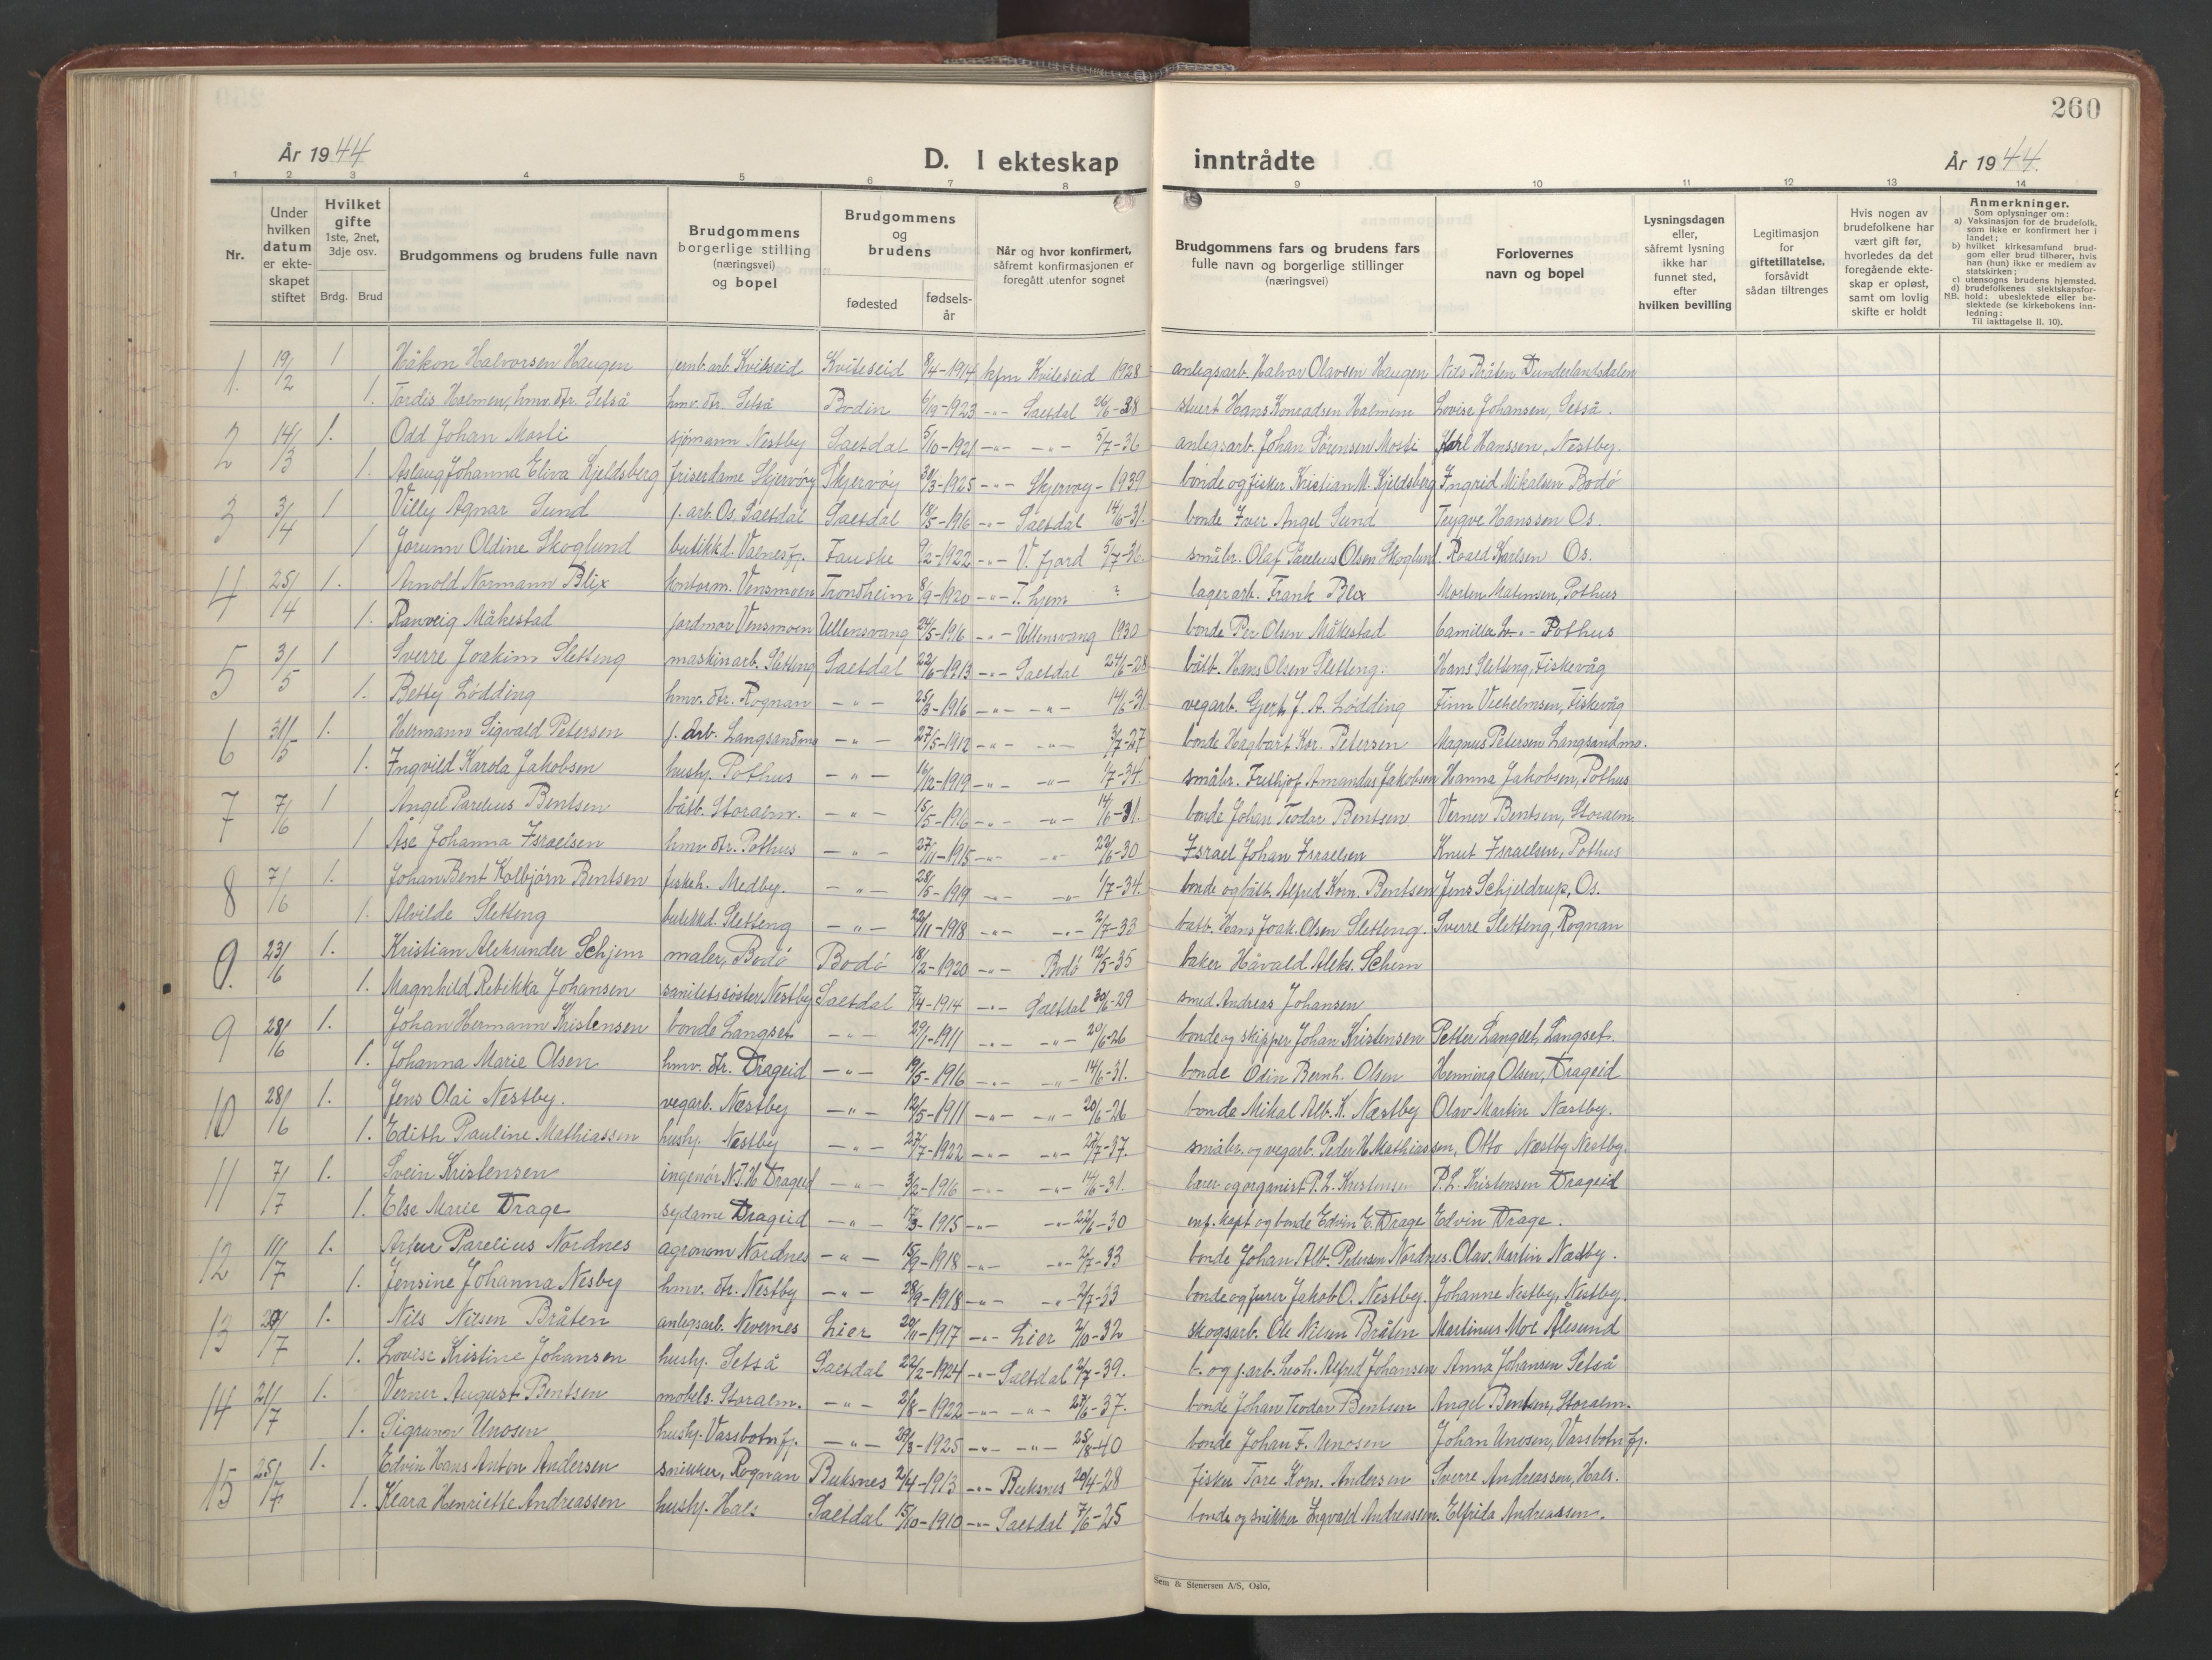 260
År 1944
D. I ekteskap inntrådte
År 1944.
1 2 3 4 5 6 7 8 9 10 11 12 13 14
Nr.
Under hvilken datum er ekteskapet stiftet
Hvilket gifte 1ste, 2net, 3dje osv.
Brdg. Brud
Brudgommens og brudens fulle navn
Brudgommens borgerlige stilling (næringsvei) og bopel
Brudgommens og brudens
fødested
fødselsår
Når og hvor konfirmert, såfremt konfirmasjonen er foregått utenfor sognet
Brudgommens fars og brudens fars fulle navn og borgerlige stillinger (næringsvei)
Forlovernes navn og bopel
Lysningsdagen eller, såfremt lysning ikke har funnet sted, efter hvilken bevilling
Legitimasjon for giftetillatelse, forsåvidt sådan tiltrenges
Hvis nogen av brudefolkene har vært gift før, hvorledes da det foregående ekteskap er opløst, samt om lovlig skifte er holdt
Anmerkninger.
Som oplysninger om:
a) Vaksinasjon for de brudefolk, som ikke er konfirmert her i landet;
b) hvilket kirkesamfund brudgom eller brud tilhører, hvis han (hun) ikke er medlem av statskirken;
c) utensogns brudens hjemsted.
d) brudefolkenes slektskapsforhold: ubeslektede eller beslektede (se kirkebokens innledning:
NB. Til iakttagelse II. 10).
1. 19/2 1 Håkon Halvorsen Haugen jernb.arb. Kviteseid Kviteseid 8/4-1914 kfm Kviteseid 1928 anlegsarb. Halvor Olavsen Haugen Nils Bråten Dunderlandsdalen
1. Tordis Halmen, hmv. dtr. Setså hmv. dtr. Setså Bodin 6/9-1923 -"- Saltdal 26/6-38 stuert Hans Konradsen Halmem Lovise Johansen, Setså.
2 14/3 1. Odd Johan Mosti sjømann Nestby Saltdal 5/10-1921 -"- -"- 5/7-36 anlegsarb. Johan Sørensen Mosti Karl Hanssen, Nestby.
1. Aslaug Johanna Eliva Kjeldsberg friserdame Skjervøy Skjervøy 31/3-1925 -"- Skjervøy - 1939 bonde og fisker Kristian M. Kjeldsberg Ingrid Mikalsen Bodø
3 3/4 1 Villy Agnar Sund j.arb. Os. Saltdal Saltdal 18/5-1916 -"- Saltdal 14/6-31. bonde Iver Angel Sund Trygve Hanssen Os.
1 Jorunn Oldine Skoglund butikkd. Valnesfj. Fauske 9/2-1922 -"- V. fjord 5/7-36. småbr. Olaf Parelius Olsen Skoglund. Roald Karlsen Os.
4 25/4 1. Arnold Normann Blix kontorm. Vensmoen Trondheim 8/9-1920 -"- T. hjem ? lagerarb. Frank Blix Morten Matensen, Pothus
1. Ranveig Måkestad jordmor Vensmoen Ullensvang 24/5-1916 -"- Ullensvang 1930 bonde Per Olsen Måkestad Camilla -"- Pothus
5 3/5 1 Sverre Joakim Sletteng maskinarb. Sletteng Saltdal 22/6-1913 -"- Saltdal 24/6-28 båtb. Hans Olsen Sletteng. Hans Sletteng, Fiskevåg
1. Betty Lødding hmv. dtr. Rognan -"- 25/3-1916 -"- -"- 14/6-31 vegarb. Gjert J. A. Lødding Finn Vilhelmsen, Fiskevåg
6 31/5 1. Hermann Sigvald Petersen j. arb. Langsandmo -"- 27/5-1912 -"- -"- 3/7-27 bonde Hagbart Kor. Petersen Magnus Petersen Langsandmo.
1. Ingvild Karola Jakobsen hushj. Pothus -"- 16/12-1919 -"- -"- 1/7-34. småbr. Frithjof Amandus Jakobsen Hanna Jakobsen, Pothus
7 7/6 1 Angel Parelius Bentsen båtb. Storalm. -"- 15/5-1916 -"- -"- 14/6-31. bonde Johan Teodor Bentsen Verner Bentsen, Storalm.
1 Åse Johanna Israelsen hmv dtr. Pothus -"- 27/11-1915 -"- -"- 22/6-30 Israel Johan Israelsen Knut Israelsen, Pothus
8 7/6 1. Johan Bent Kolbjørn Bentsen fiskeh. Medby. -"- 28/5-1919 -"- -"- 1/7-34. bonde og båtb. Alfred Korn. Bentsen Jens Schjeldrup, Os.
1. Alvilde Sletteng butikkd. Sletteng -"- 23/11-1918 -"- -"- 2/7-33 båtb. Hans Joak. Olsen Sletteng. Sverre Sletteng, Rognan
9. 23/6 1. Kristian Aleksander Schjem maler, Bodø Bodø 18/2-1920 -"- Bodø 12/5-35 baker Håvald Aleks. Schem
1. Magnhild Rebekka Johansen sanitetssøster Nestby Saltdal 7/4-1914 -"- Saltdal 30/6-29 smed Andreas Johansen
9 28/6 1. Johan Hermann Kristensen bonde Langset -"- 29/1-1911 -"- -"- 20/6-26 bonde og skipper Johan Kristensen Petter Langset, Langset.
1. Johanna Marie Olsen hmv. dtr. Drageid -"- 19/5-1916 -"- -"- 14/6-31. bonde Odin Bernh. Olsen Henning Olsen, Drageid
10 28/6 1. Jens Olai Nestby. vegarb. Næstby -"- 12/5-1911 -"- -"- 20/6-26 bonde Mikal Alb. K. Næstby Olav Martin Næstby.
1. Edith Pauline Mathiassen hushj. Næstby -"- 27/7-1922 -"- -"- 27/7-37. småbr. og vegarb. Peder H. Mathiassen, Otto Næstby Nestby.
11 7/7 1. Svein Kristensen ingenør N.T.H Drageid -"- 3/2-1916 -"- -"- 14/6-31. lærer og organist P. L. Kristensen P. L. Kristensen Drageid
1. Else Marie Drage sydame Drageid -"- 17/3-1915 -"- -"- 22/6-30 inf. kapt og bonde Edvin E. Drage Edvin Drage.
12 11/7 1. Artur Parelius Nordnes agronom Nordnes -"- 15/9-1918 -"- -"- 2/7-33 bonde Johan Alb. Pedersen Nordnes. Olav Martin Næstby.
1. Jensine Johanna Nesby hmv. dtr. Nestby -"- 28/9-1918 -"- -"- 2/7-33 bonde og furer Jakob O. Nestby. Johanne Nestby, Nestby.
13 /7 1. Nils Nilsen Bråten anlegsarb. Nevernes Lier 20/11-1917 -"- Lier 2/10-32 skogsarb. Ole Nilsen Bråten Martinus Moe Ålesund
1. Lovise Kristine Johansen hushj. Setså Saltdal 22/2-1924 -"- Saltdal 2/7-39. b. og j.arb. Leoh. Alfred Johansen Anna Johansen Setså
14 21/7 1. Verner August Bentsen møbels. Storalm. -"- 2/8-1922 -"- -"- 27/6-37. bonde Johan Teodor Bentsen Angel Bentsen, Storalm.
1. Sigrunn Unosen hushj. Vassbotnfj. -"- 29/3-1925 -"- -"- 25/8-40 bonde Johan F. Unosen Johan Unosen, Vassbotnfj.
15 25/7 1. Edvin Hans Anton Andersen snikker, Rognan Buksnes 2/4-1913 -"- Buksnes 20/4-28 fisker Tore Korn. Andersen Sverre Andreassen, Hals.
1. Klara Henriette Andreassen hushj. Hals Saltdal 15/10-1910 -"- Saltdal 7/6-25 bonde og snikker Ingvald Andreassen. Elfrida Andreassen.
Sem & Stenersen A/S, Oslo.